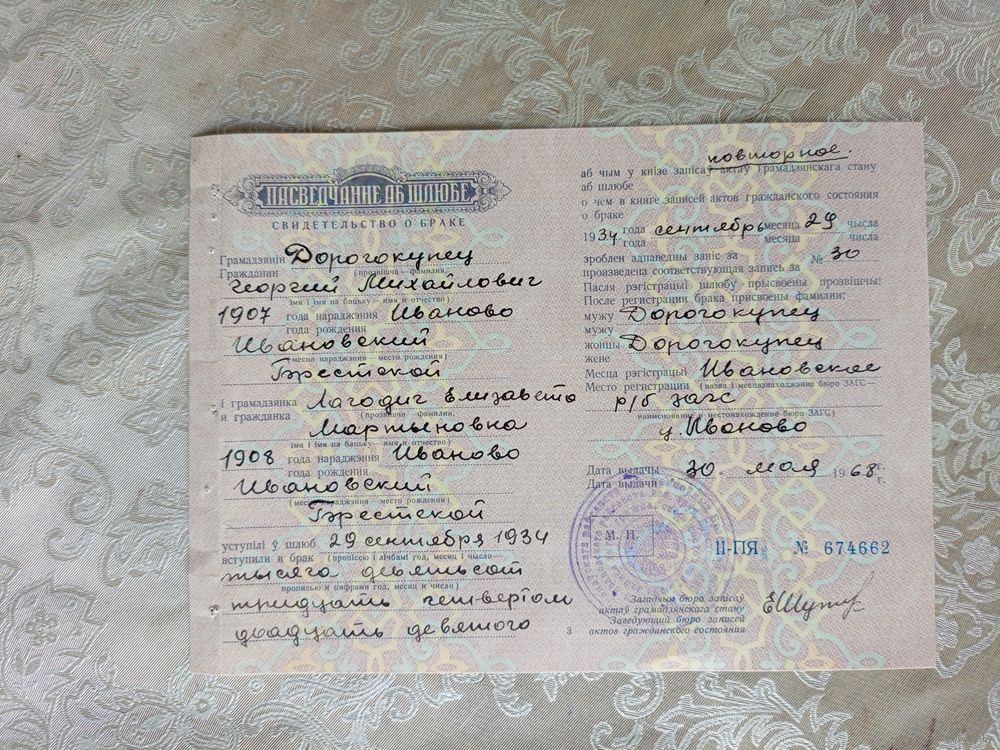 ПАСВЕДЧАННЕ АБ ШЛЮБЕ
СВИДЕТЕЛЬСТВО О БРАКЕ
Грамадзянін Дорогокупец
Гражданин (прозвішча — фамилия,
Георгий Михайлович
імя і імя па бацьку — имя и отчество)
1907 года нараджэння Иваново
года рождения
Ивановский
(месца нараджэння — место рождения)
Брестской
і грамадзянка Лагодич Елизавета
и гражданка (прозвішча — фамилия,
Мартыновна
імя і імя па бацьку — имя и отчество)
1908 года нараджэння Иваново
года рождения
Ивановский
(месца нараджэння — место рождения)
Брестской
уступілі ў шлюб 29 сентября 1934
вступили в брак (пропіссю і лічбамі год, месяц і число —
тысяча девятьсот
прописью и цифрами год, месяц и число)
тридцать четвертом
двадцать девятого
повторное.
аб чым у кнізе запісаў актаў грамадзянскага стану
аб шлюбе
о чем в книге записей актов гражданского состояния
о браке
1934 года сентябрь месяца 29 чысла
года месяца числа
зроблен адпаведны запіс за № 30
произведена соответствующая запись за
Пасля рэгістрацыі шлюбу прысвоены прозвішчы:
После регистрации брака присвоены фамилии:
мужу Дорогокупец
мужу
жонцы Дорогокупец
жене
Месца рэгістрацыі Ивановское
Место регистрации (назва і месцазнаходжанне бюро ЗАГС —
р/б загс
наименование и местонахождение бюро ЗАГС)
г. Иваново
Дата выдачы 30. мая 1968 г.
Дата выдачи г.
М. П.
II-ПЯ № 674662
Загадчык бюро запісаў
актаў грамадзянскага стану
Заведующий бюро записей
актов гражданского состояния
3